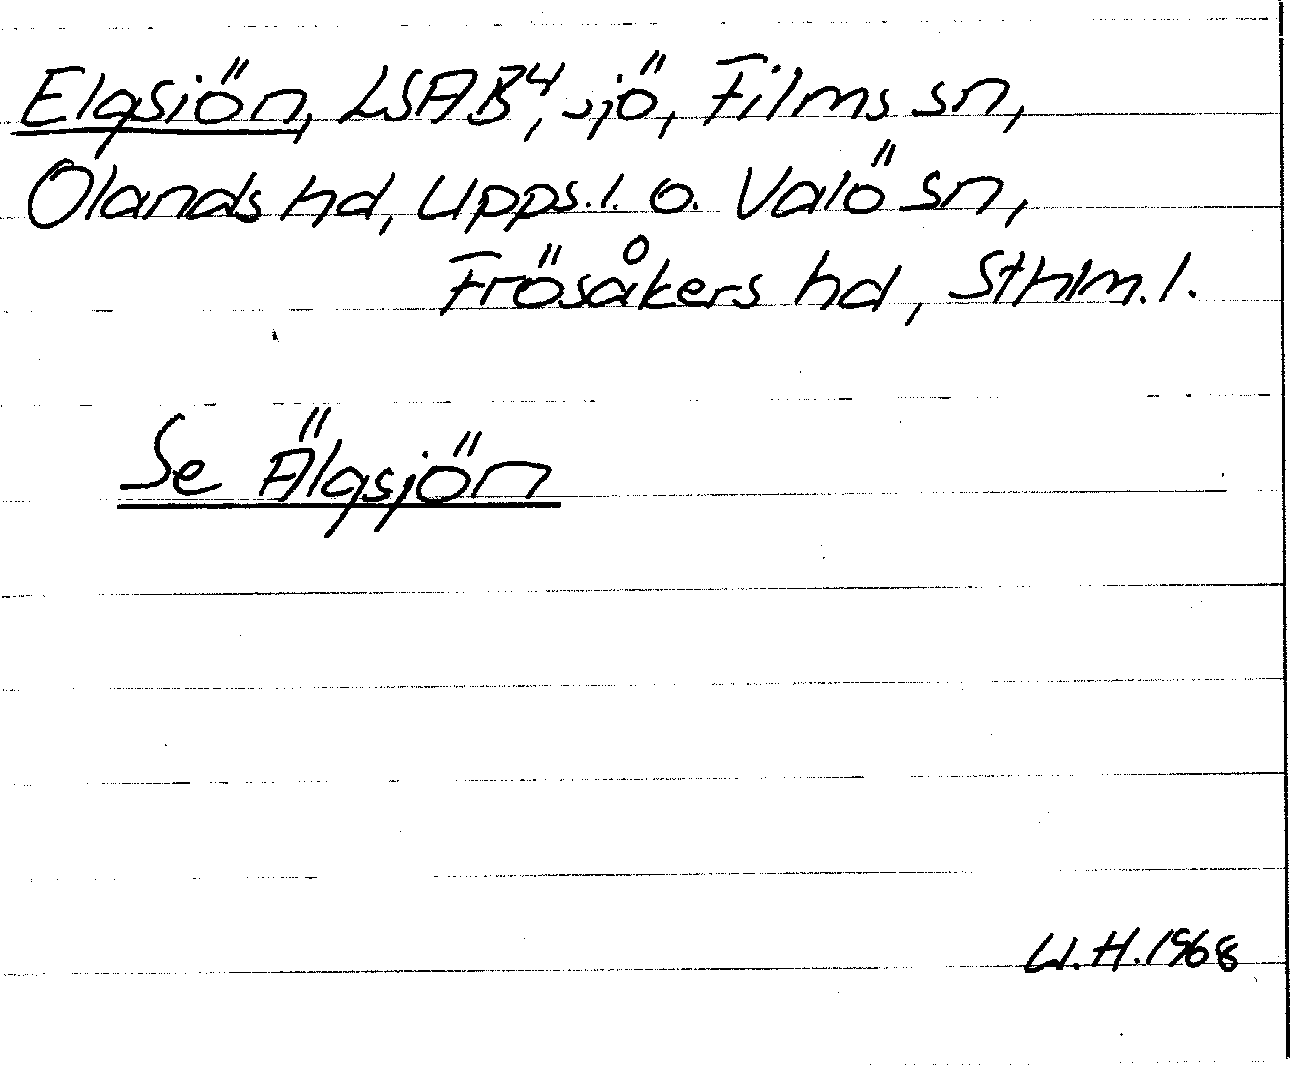 Elgsiön, LSAB4, sjö, Films sn,
Olands hd, Upps.l. o. Valö sn,
Frösåkers hd, Sthlm.l.
Se Älgsjön
W.H.1968